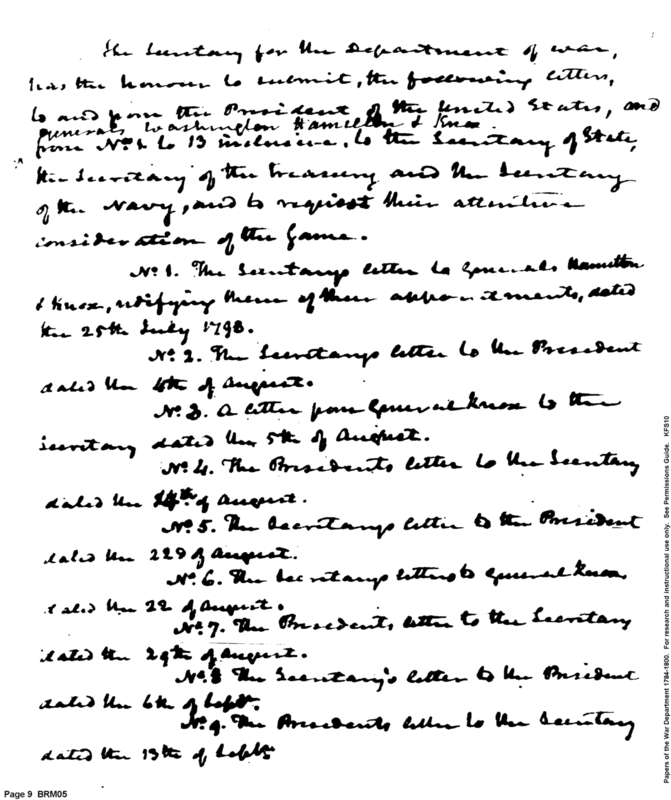 The Secretary for the Department of war,
has the honour to submit, the following letters,
to and from the President of the United States, and
generals Washington Hamilton & Knox
from No. 1 to 13 inclusive, to the Secretary of State,
the Secretary of the Treasury and the Secretary
of the Navy, and to request their attentive
consideration of the same.
No. 1. The Secretarys letter to Generals Hamilton
& Knox, notifying them of their appointments, dated
the 25th July 1798.
No. 2. The Secretarys letter to the President
dated the 4th of August.
No. 3. A letter from General Knox to the
Secretary dated the 5th of August.
No. 4. The Presidents letter to the Secretary
dated the 14th of August.
No. 5. The Secretarys letter to the President
dated the 22d of August.
No. 6. The Secretarys letter to General Knox,
dated the 22 of August.
No. 7. The Presidents letter to the Secretary
dated the 29th of August.
No. 8 The Secretary's letter to the President
dated the 6th of Sept.
No. 9. The Presidents letter to the Secretary
dated the 13th of Sept.
Page 9 BRM05
Papers of the War Department 1784-1800. For research and instructional use only. See Permissions Guide. KFS10